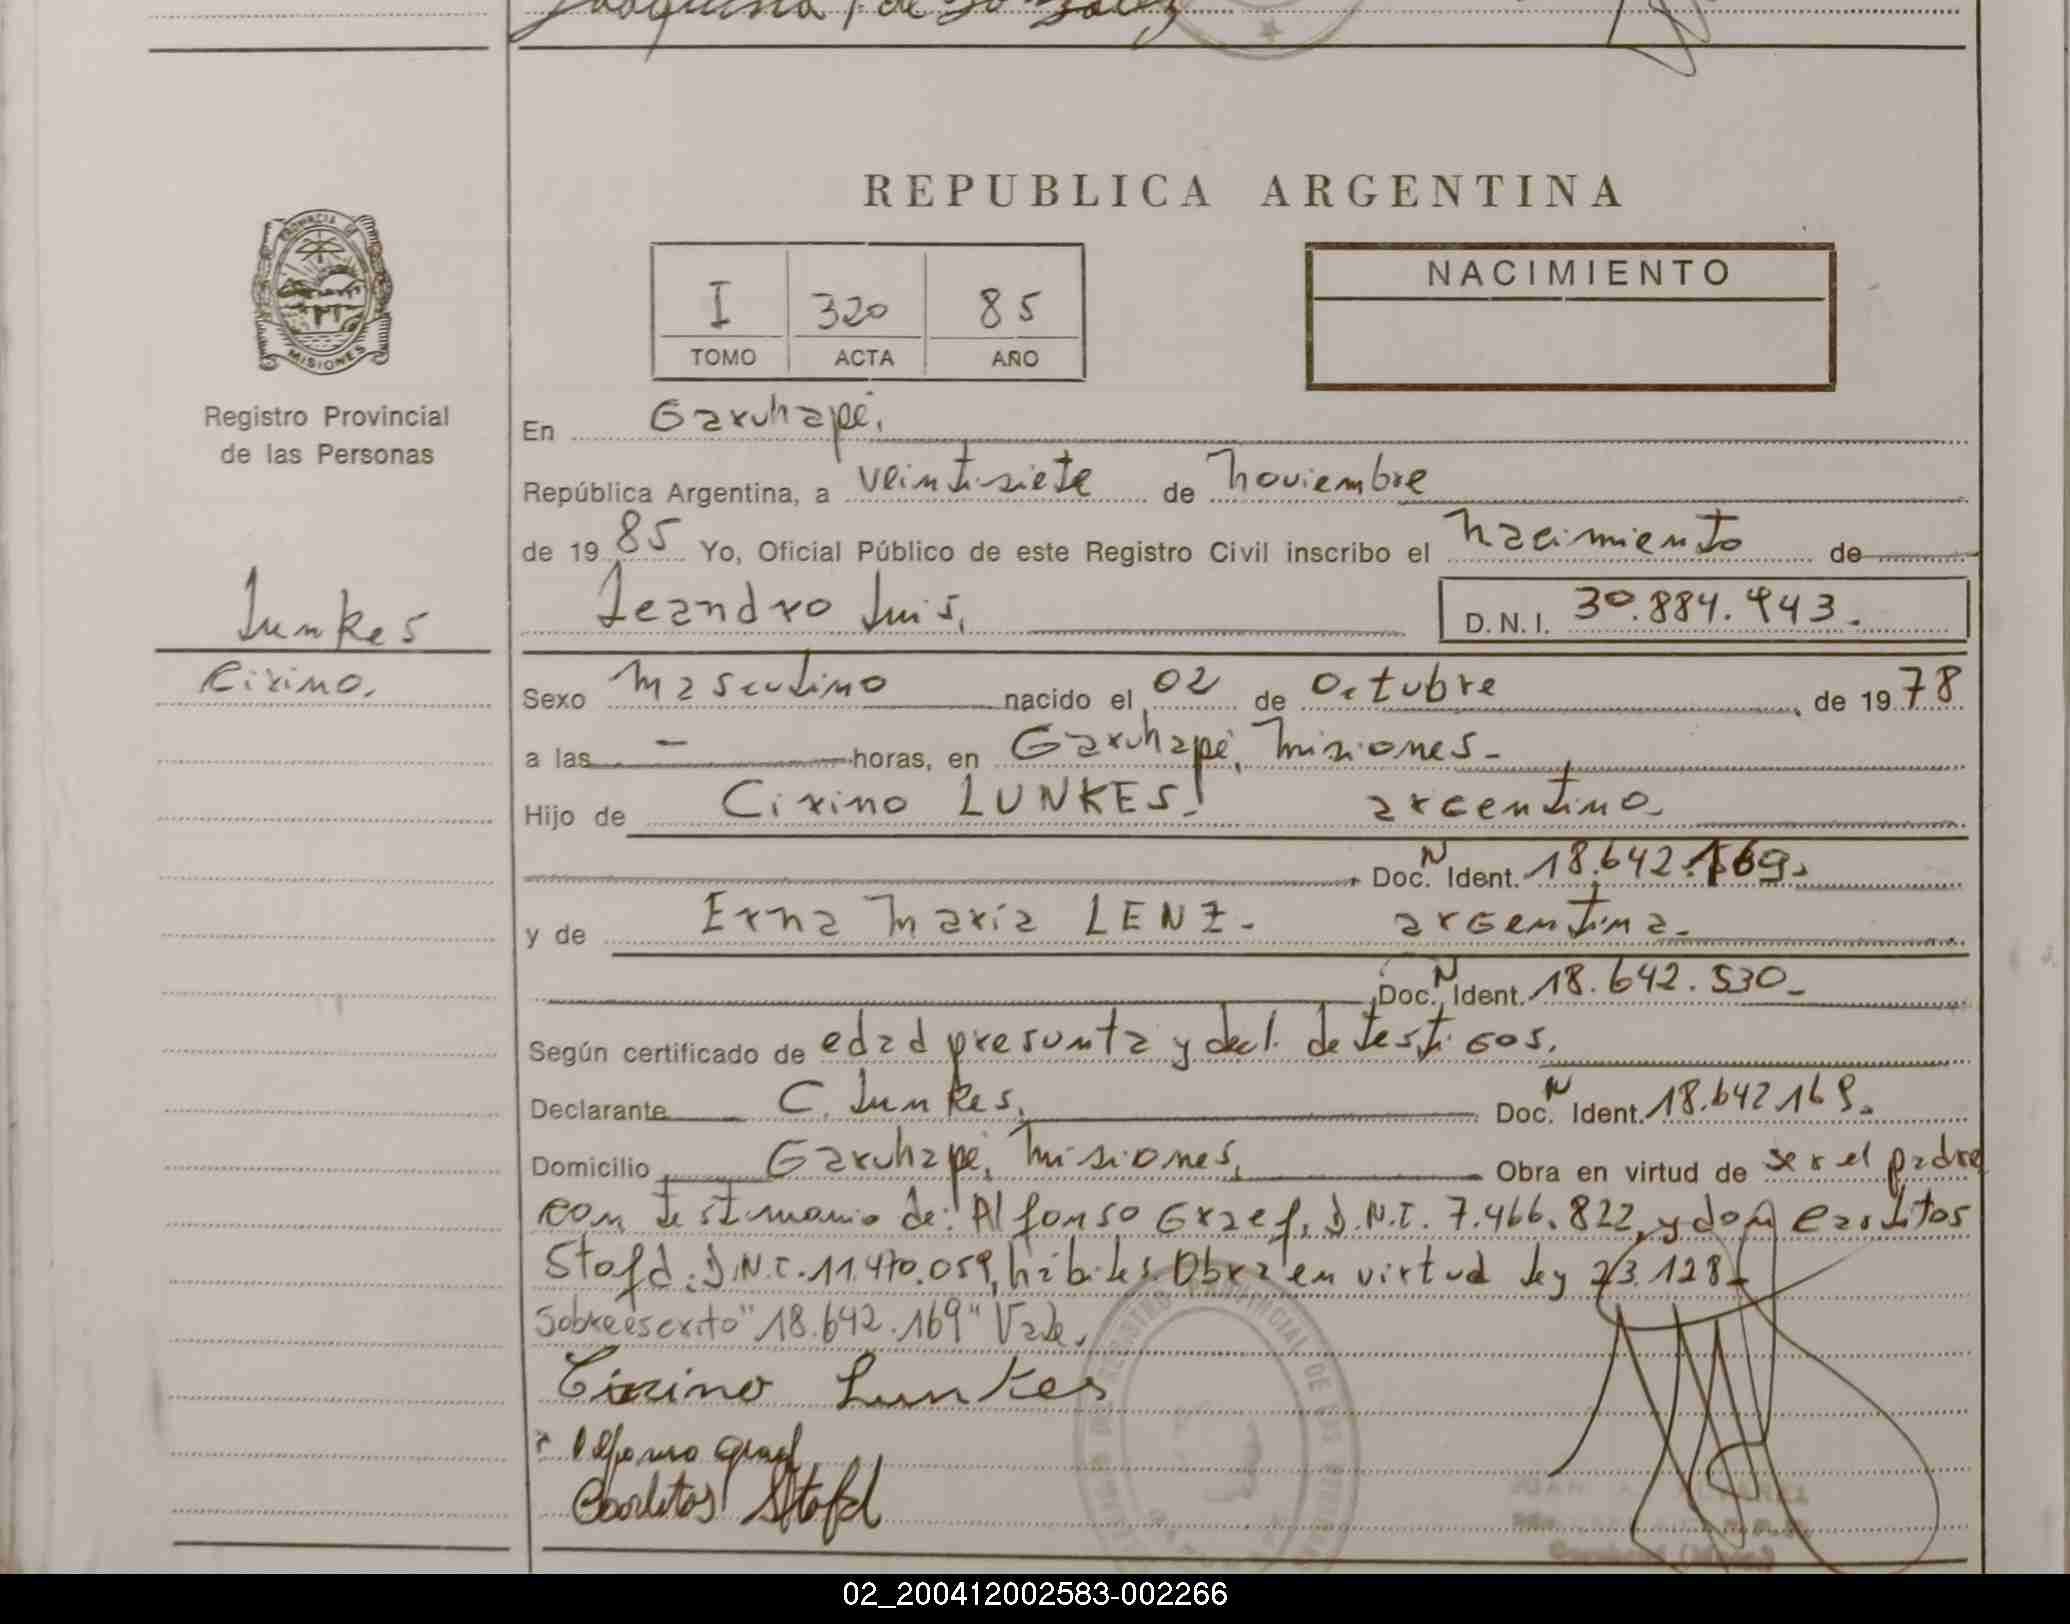 Joaquina
REPUBLICA ARGENTINA
PROVINCIA DE
MISIONES
I 320 85
TOMO ACTA AÑO
NACIMIENTO
Registro Provincial
de las Personas
En Garuhapé,
República Argentina, a veintisiete de noviembre
de 19 85 Yo, Oficial Público de este Registro Civil inscribo el nacimiento de
Lunkes
Leandro Luis, D.N.I. 30.884.943.
Cirino,
Sexo Masculino nacido el 02 de Octubre, de 19 78
a las — horas, en Garuhapé, Misiones-
Hijo de Cirino LUNKES. argentino.
Doc. N Ident. 18.642.169.
y de Erna Maria LENZ- argentina.
Doc. N Ident. 18.642.530-
Según certificado de edad presunta y decl. de testigos.
Declarante C. Lunkes, Doc. N Ident. 18.642.169.
Domicilio Garuhapé, Misiones, Obra en virtud de ser el padre
con testimonio de: Alfonso Graef, D.N.I. 7.466.822, y don Carlitos
Stofd. D.N.I. 11.470.059, hábiles. Obra en virtud Ley 23.128-
Sobreescrito "18.642.169" Vale.
Cirino Lunkes
Alfonso Graef
Carlitos Stofd
REGISTRO PROVINCIAL DE LAS PERSONAS
02_200412002583-002266